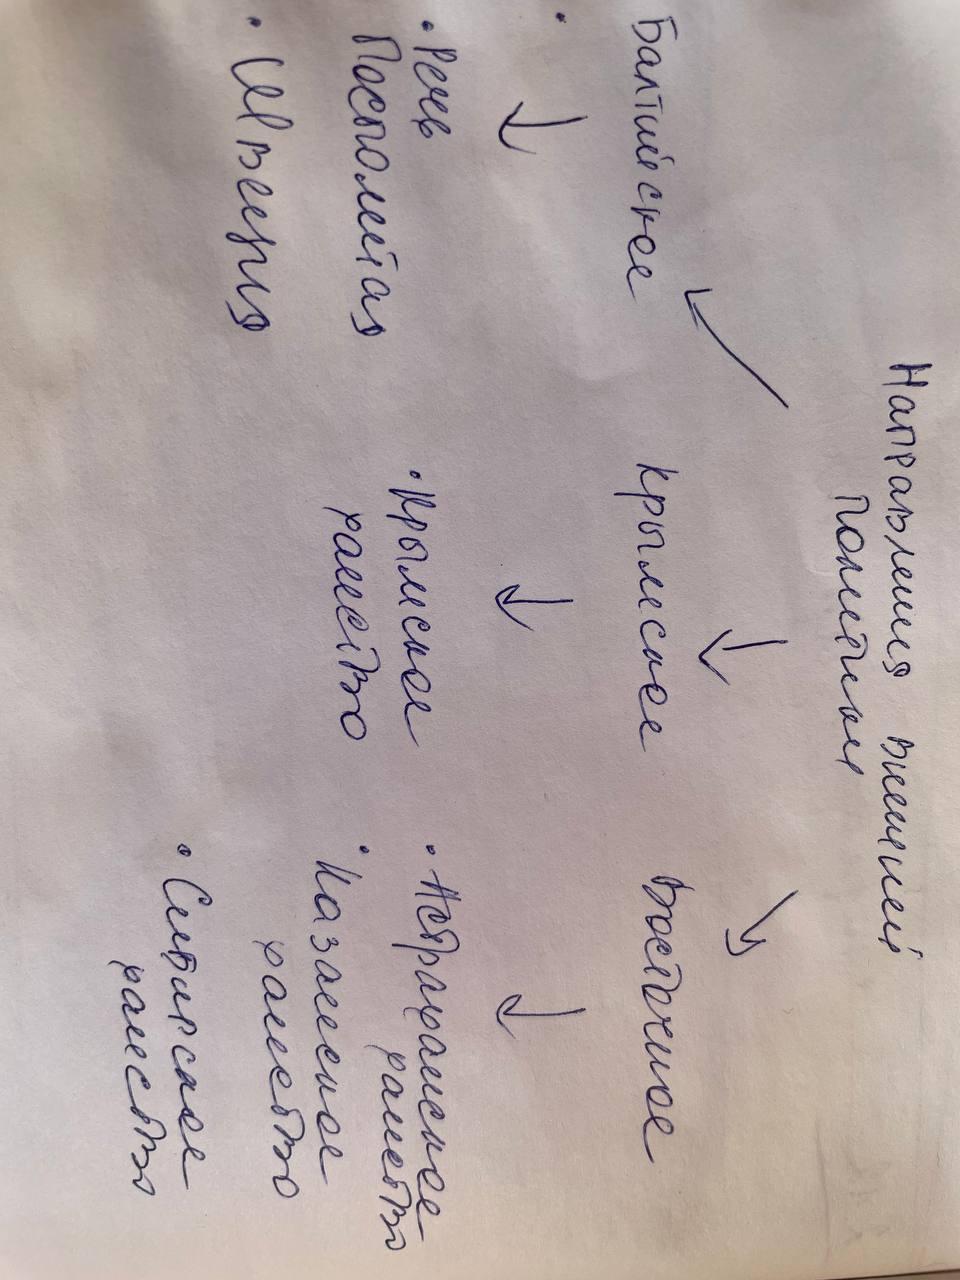 Направления внешней
политики
Балтийское
Крымское
Восточное
• Речь
Посполитая
• Швеция
• Крымское
ханство
• Астраханское
ханство
• Казанское
ханство
• Сибирское
ханство